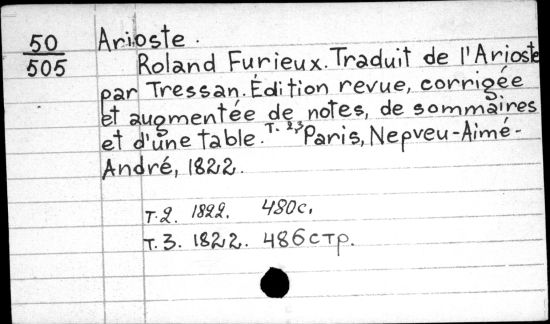 50
505
Arioste.
Roland Furieux. Traduit de l'Arioste
par Tressan. Édition revue, corrigée
et augmentée de notes, de sommaires
et d'une table. т. 2,3 Paris, Nepveu-Aimé-
André, 1822.
т. 2. 1822. 480с.
т. 3. 1822. 486стр.